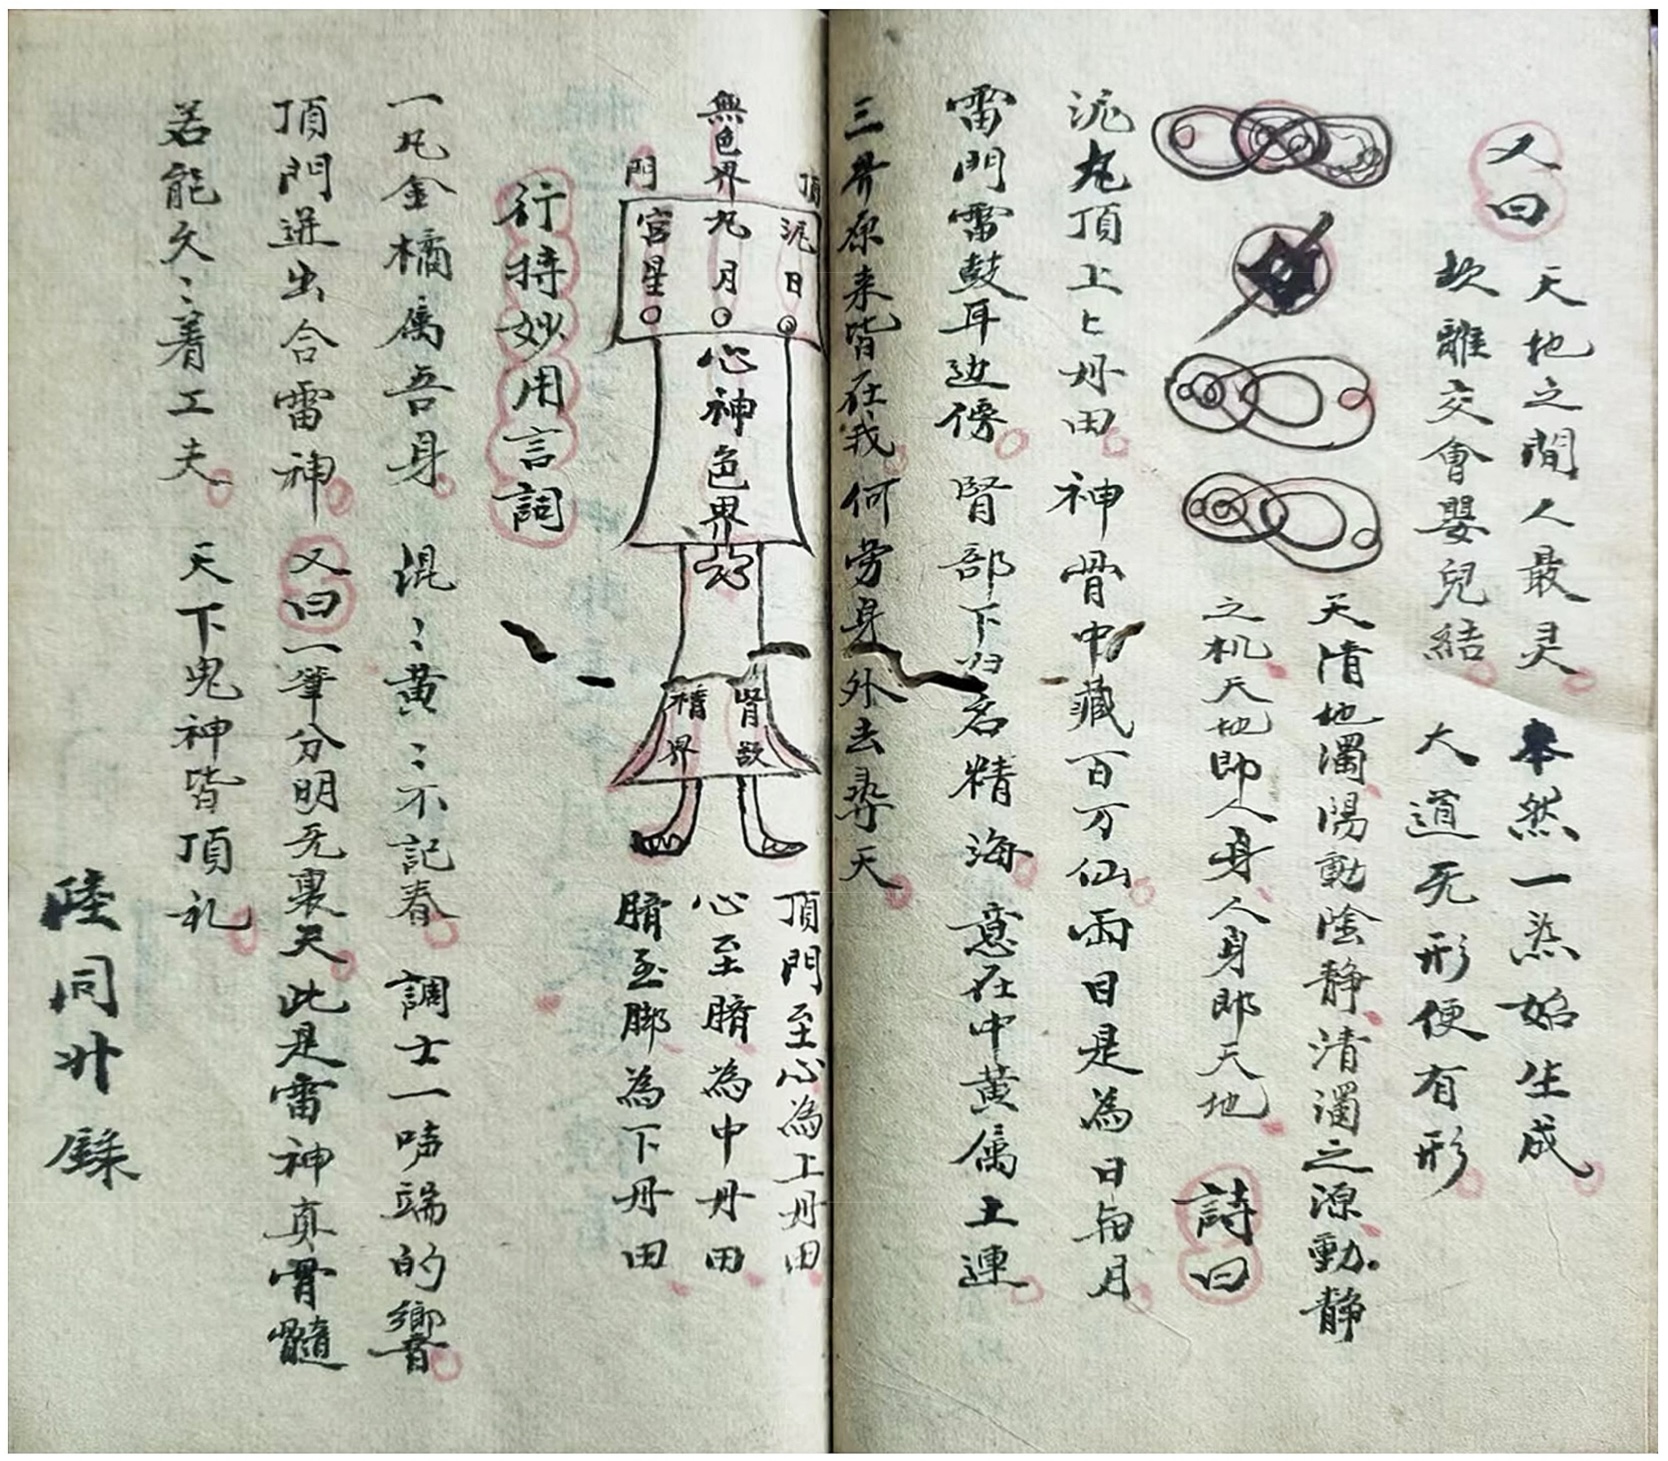 又曰
天地之間人最灵 本然一炁始生成
坎離交會嬰兒結 大道无形便有形
天清地濁陽動陰静清濁之源動静
之机天地即人身人身即天地 詩曰
泥丸頂上上丹田 神骨中藏百万仙 両日是為日与月
雷門雷鼓耳边傍 腎部下归名精海 意在中黄属土連
三界原来皆在我 何劳身外去尋天
頂門
無色界
泥丸宮
日月星
心神色界
腎欲
精界
頂門至心為上丹田
心至臍為中丹田
臍至脚為下丹田
行持妙用言詞
一丸金橘属吾身 混〻黄〻不記春 調士一声端的響
頂門迸出合雷神 又曰 一筆分明无裏天 此是雷神真骨髓
若能久〻着工夫 天下鬼神皆頂礼
陸同升錄